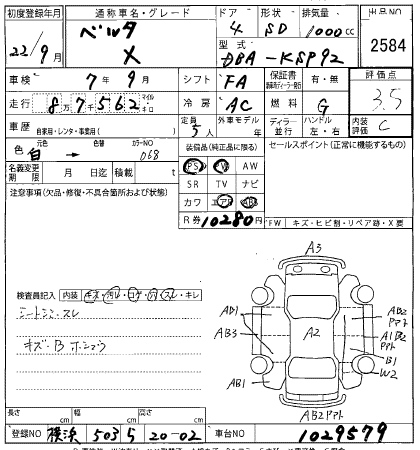 初度登録年月 通称車名・グレード ドア 形状 排気量 出品NO
22/9月 ベルタ X 4 SD 1000cc 2584
型式 DBA-KSP92
車検 7年9月 シフト FA 保証書 有・無 評価点 3.5
走行 87562 マイル キロ 冷房 AC 燃料 G
車歴 自家用・レンタ・事業用( ) 定員 5人 外車モデル 年 ディラー 並行 ハンドル 左・右 内装評価 C
色 元色 白 → 色替 カラーNO 068 装備品(純正品に限る) セールスポイント(正常に機能するもの)
PS PW AW
名義変更期限 月 日迄 積載 t SR TV ナビ
注意事項(欠品・修復・不具合箇所および状態) カワ エアB ABS
R券 10280円 *FW キズ・ヒビ割・リペア跡・X要
検査員記入 内装 キズ・汚レ・コゲ・穴・スレ・キレ
シートシミ・スレ
キズ・B ボコツウ
A3
AB1 AB2 アト
AB3 A2 A1B2 アト
B1
AB1 W2
AB2アト
長さ cm 幅 cm 高さ cm
登録NO 横浜 503 5 20-02 車台NO 1029579